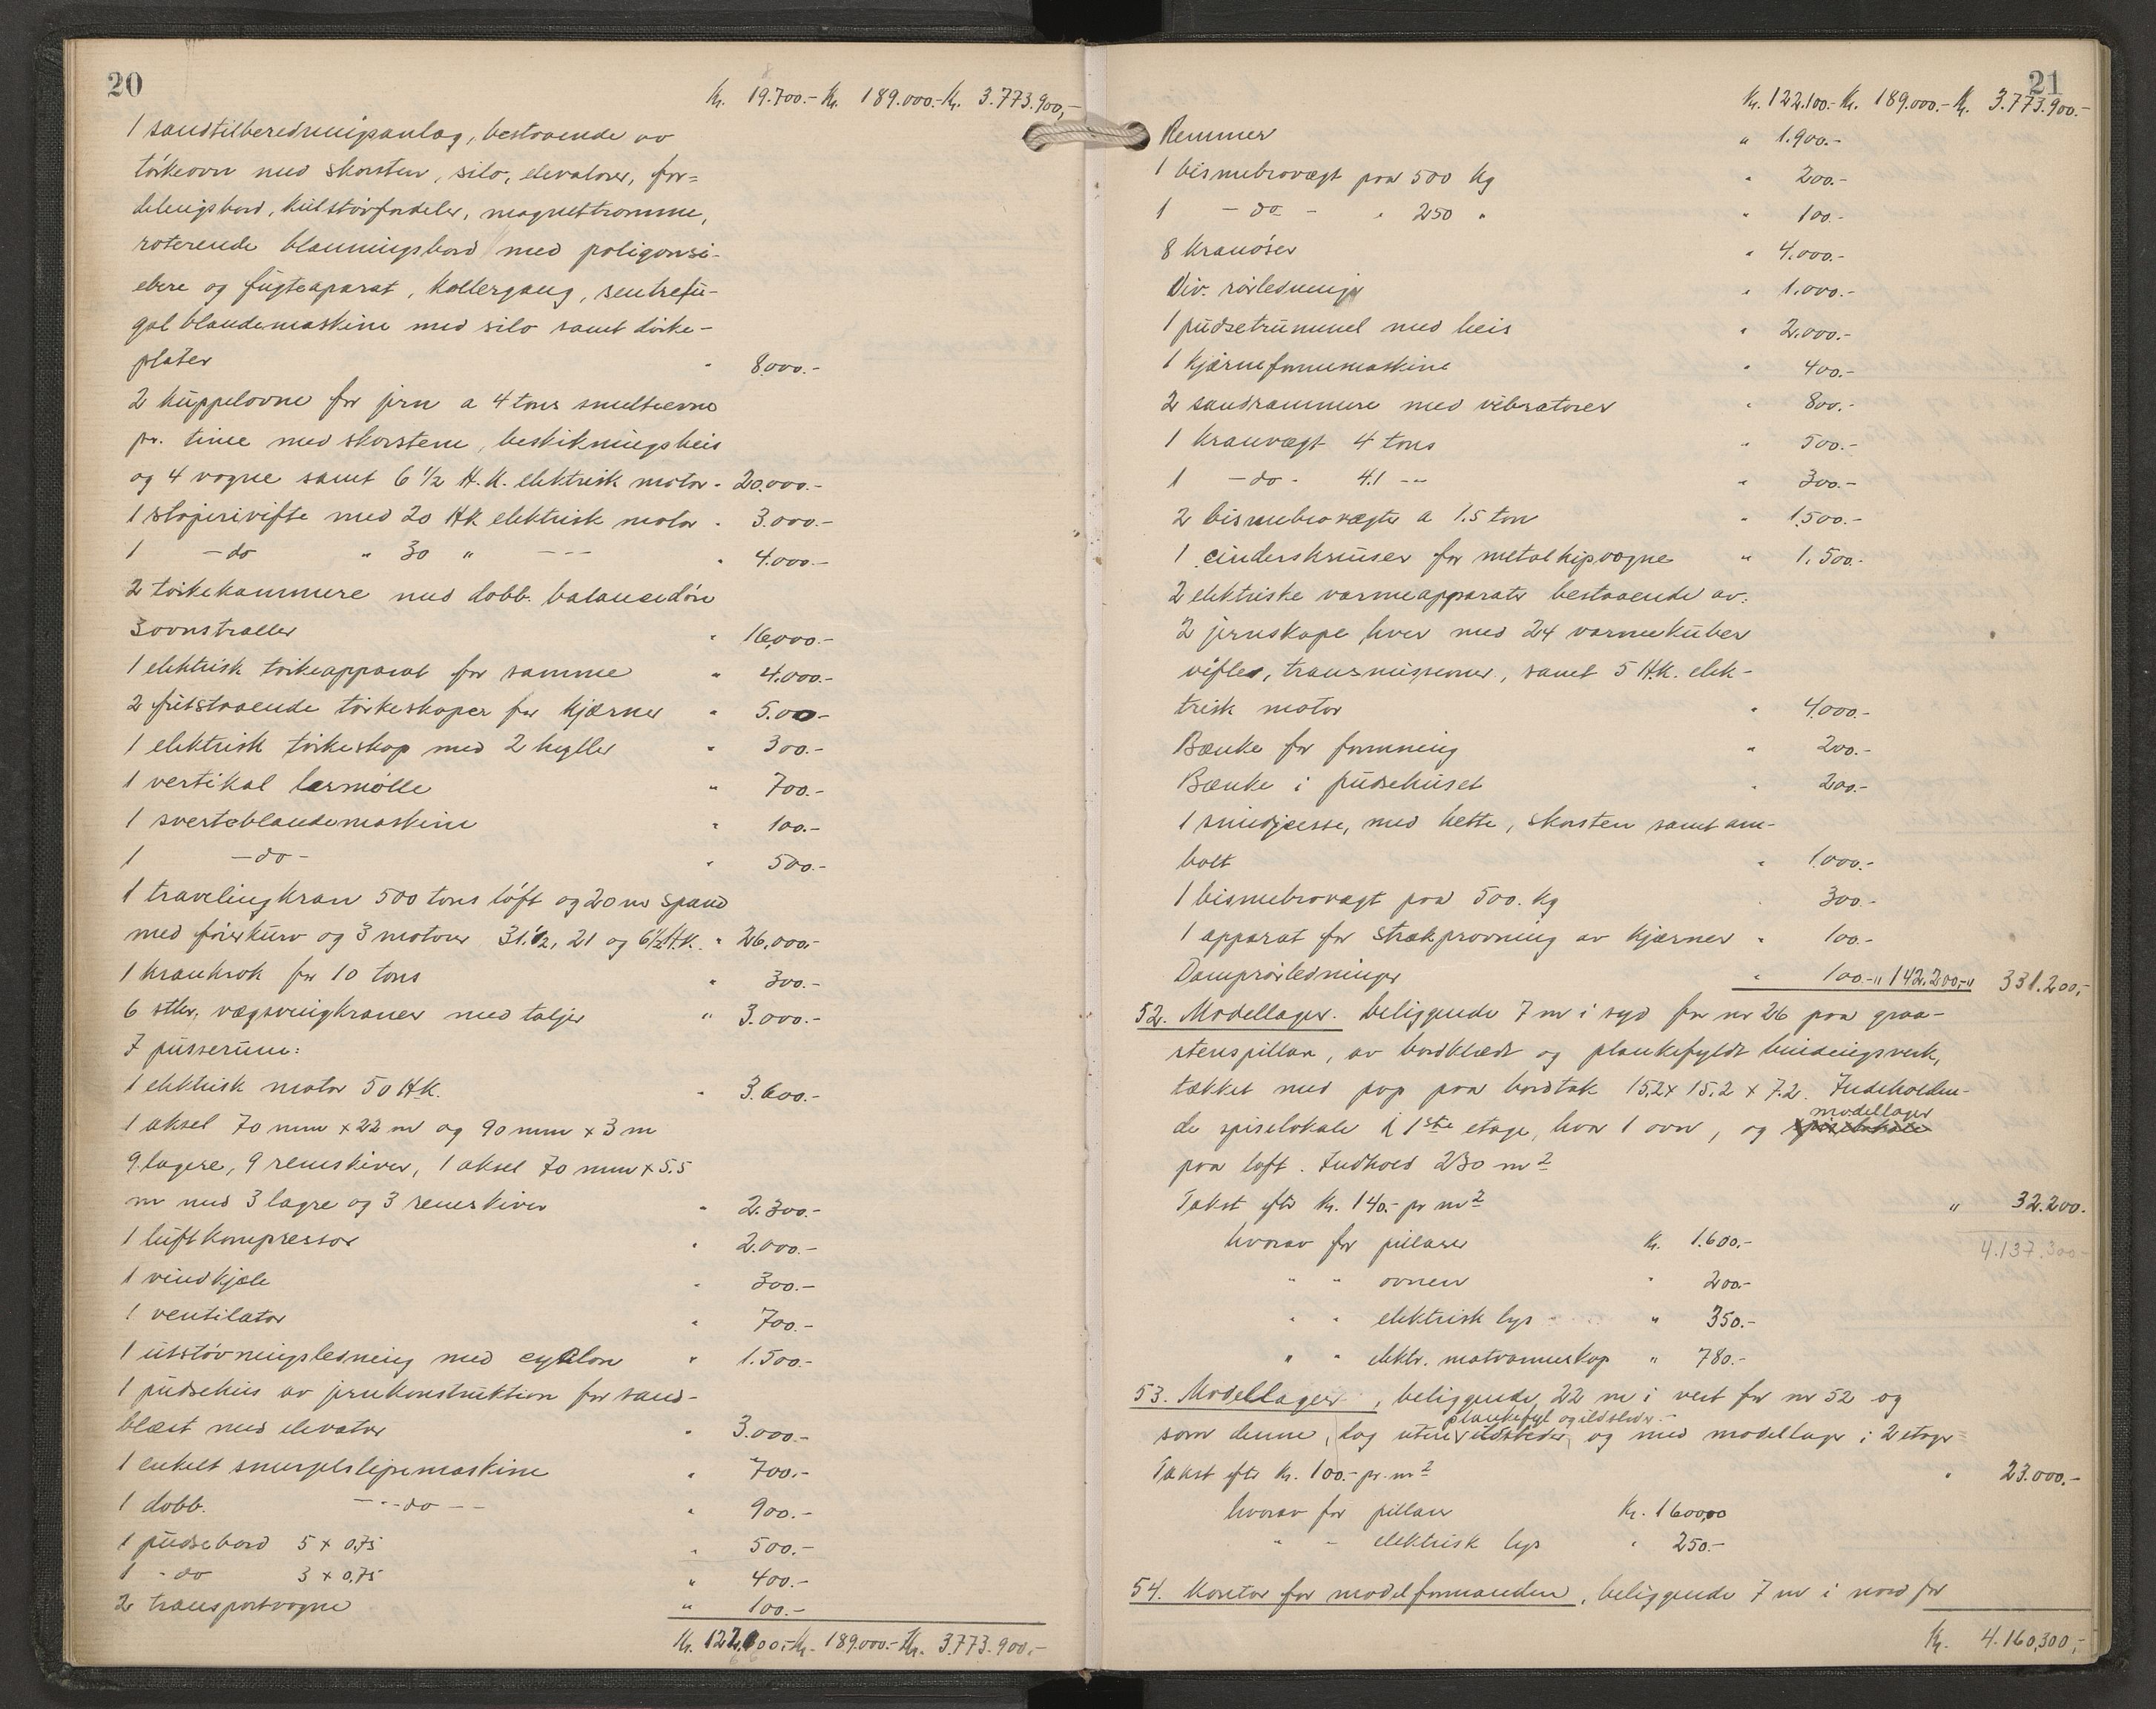 20
Kr. 19.700.- Kr. 189.000.- Kr. 3.773.900,-
1 sandtilberedningsanlæg, bestaaende av
törkeovn med skorsten, silo, elevatorer, for=
delingsbord, kulstövfordeler, magnettromme,
roterende blanningsbord med poligonsi-
ebere og fugteaparat, kollergang, sentrefu-
gal blandemaskine med silo samt dörke-
plater " 8.000.-
2 kuppelovne for jern a 4 tons smelteevne
pr. time med skorstene, beskikningsheis
og 4 vogne samt 6 1/2 H.K. elektrisk motor " 20.000.-
1 stöperivifte med 20 HK elektrisk motor " 3.000.-
1 - do " 30 " - - - " 4.000.-
2 törkekammere med dobb. balancedöre
3 ovnstraller " 16.000.-
1 elektrisk törkeapparat for samme " 4.000.-
2 fritstaaende törkeskaper for kjærner " 5.000-
1 elektrisk törkeskap med 2 hyller " 300.-
1 vertikal lermölle " 700.-
1 sverteblandemaskine " 100.-
1 - do - " 500.-
1 travelingkran 500 tons löft og 20 m spand
med förerkurv og 3 motorer 31.1/2, 21 og 6 1/2 H.K. " 26.000.-
1 krankrok for 10 tons " 300.-
6 stkr. vægsvingkraner med taljer " 3.000.-
I pusserum:
1 elektrisk motor 50 HK. " 3.600.-
1 aksel 70 mm x 22 m og 90 mm x 3 m
9 lagere, 9 remskiver, 1 aksel 70 mm x 5.5
m med 3 lagre og 3 remskiver " 2.300.-
1 luftkompressor " 2.000.-
1 vindkjele " 300.-
1 ventilator " 700.-
1 utstövningsledning med cyklon " 1.500.-
1 pudsehus av jernkonstruktion for sand-
blæst med elevator " 3.000.-
1 enkelt smergelslipemaskine " 700.-
1 dobb. - - - do - - " 900.-
1 pudsebord 5 x 0,75 " 500.-
1 - do 3 x 0,75 " 400.-
2 transportvogne " 100.-
Kr. 122.100.- Kr. 189.000.- Kr. 3.773.900.-
21
Kr. 122.100.- Kr. 189.000.- Kr. 3.773.900.-
Remmer " 1.900.-
1 bismebrovægt paa 500 kg " 200.-
1 - do - " 250 " " 100.-
8 kranöser " 4.000.-
Div. rörledninger " 1.000.-
1 pudsetrummel med heis " 2.000.-
1 kjærneformemaskine " 400.-
2 sandrammere med vibratorer " 800.-
1 kranvægt 4 tons " 500.-
1 - do - 4.1 - - " 300.-
2 bismebrovægter a 1.5 ton " 1.500.-
1 cinderskruser for metalkipvogne " 1.500.-
2 elektriske varmeapparater bestaaende av:
2 jernskape hver med 24 varmekuber
vifter, transmissioner, samt 5 H.K. elek-
trisk motor " 4.000.-
Bænke for formning " 200.-
Bænke i pudsehuset " 200.-
1 smidjeesse, med hette, skorsten samt am-
bolt " 1.000.-
1 bismebrovægt paa 500. kg 300.-
1 apparat for strækprovning av kjærner " 100.-
Damprörledninger " 100.- " 142.200,- " 331.200,-
52. Modellager. beliggende 7 m i syd for nr 26 paa graa-
stenspillar, av bordklædt og plankefyldt bindingsverk,
tækket med pap paa bordtak 15,2 x 15.2 x 7.2. Indeholden-
de spiselokale i 1ste etage, hvor 1 ovn, og spiselokale modellager
paa loft. Indhold 230 m2
Takst efter Kr. 140.- pr m2 " 32.200.
hvorav for pillarer Kr. 1.600.- 4.137.300-
" " ovnen " 200.-
" " elektrisk lys " 350.-
" " elektr. matvarmeskap " 780.-
53. Modellager, beliggende 22 m i vest for nr 52 og
plankefyl og ildsteder.-
som denne, dog uten ildsteder, og med modellager i 2 etager
Takst efter Kr. 100.- pr. m2 " 23.000.-
hvorav for pillarer Kr. 1600,00
" " elektrisk lys " 250.-
54. Kontor for modelformanden, beliggende 7 m i nord for
Kr. 4.160,300,-